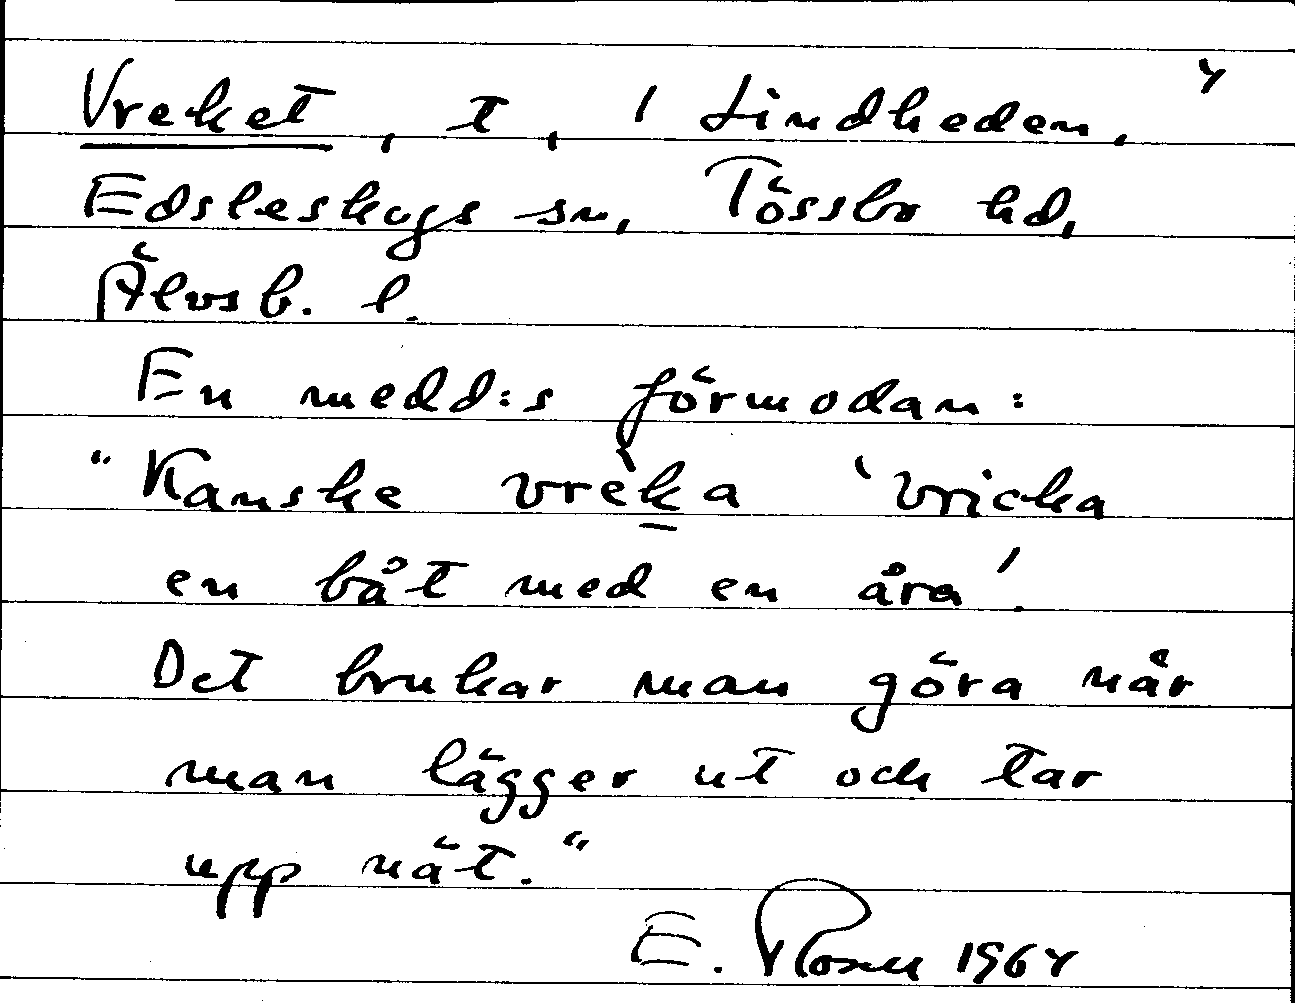 Vreket, t, 1 Lindheden,
Edsleskogs sn, Tössbo hd,
Älvsb. l.
En medd:s förmodan:
"Kanske vrèka 'vricka
en båt med en åra'.
Det brukar man göra när
man lägger ut och tar
upp nät."
E. Rosen 1964